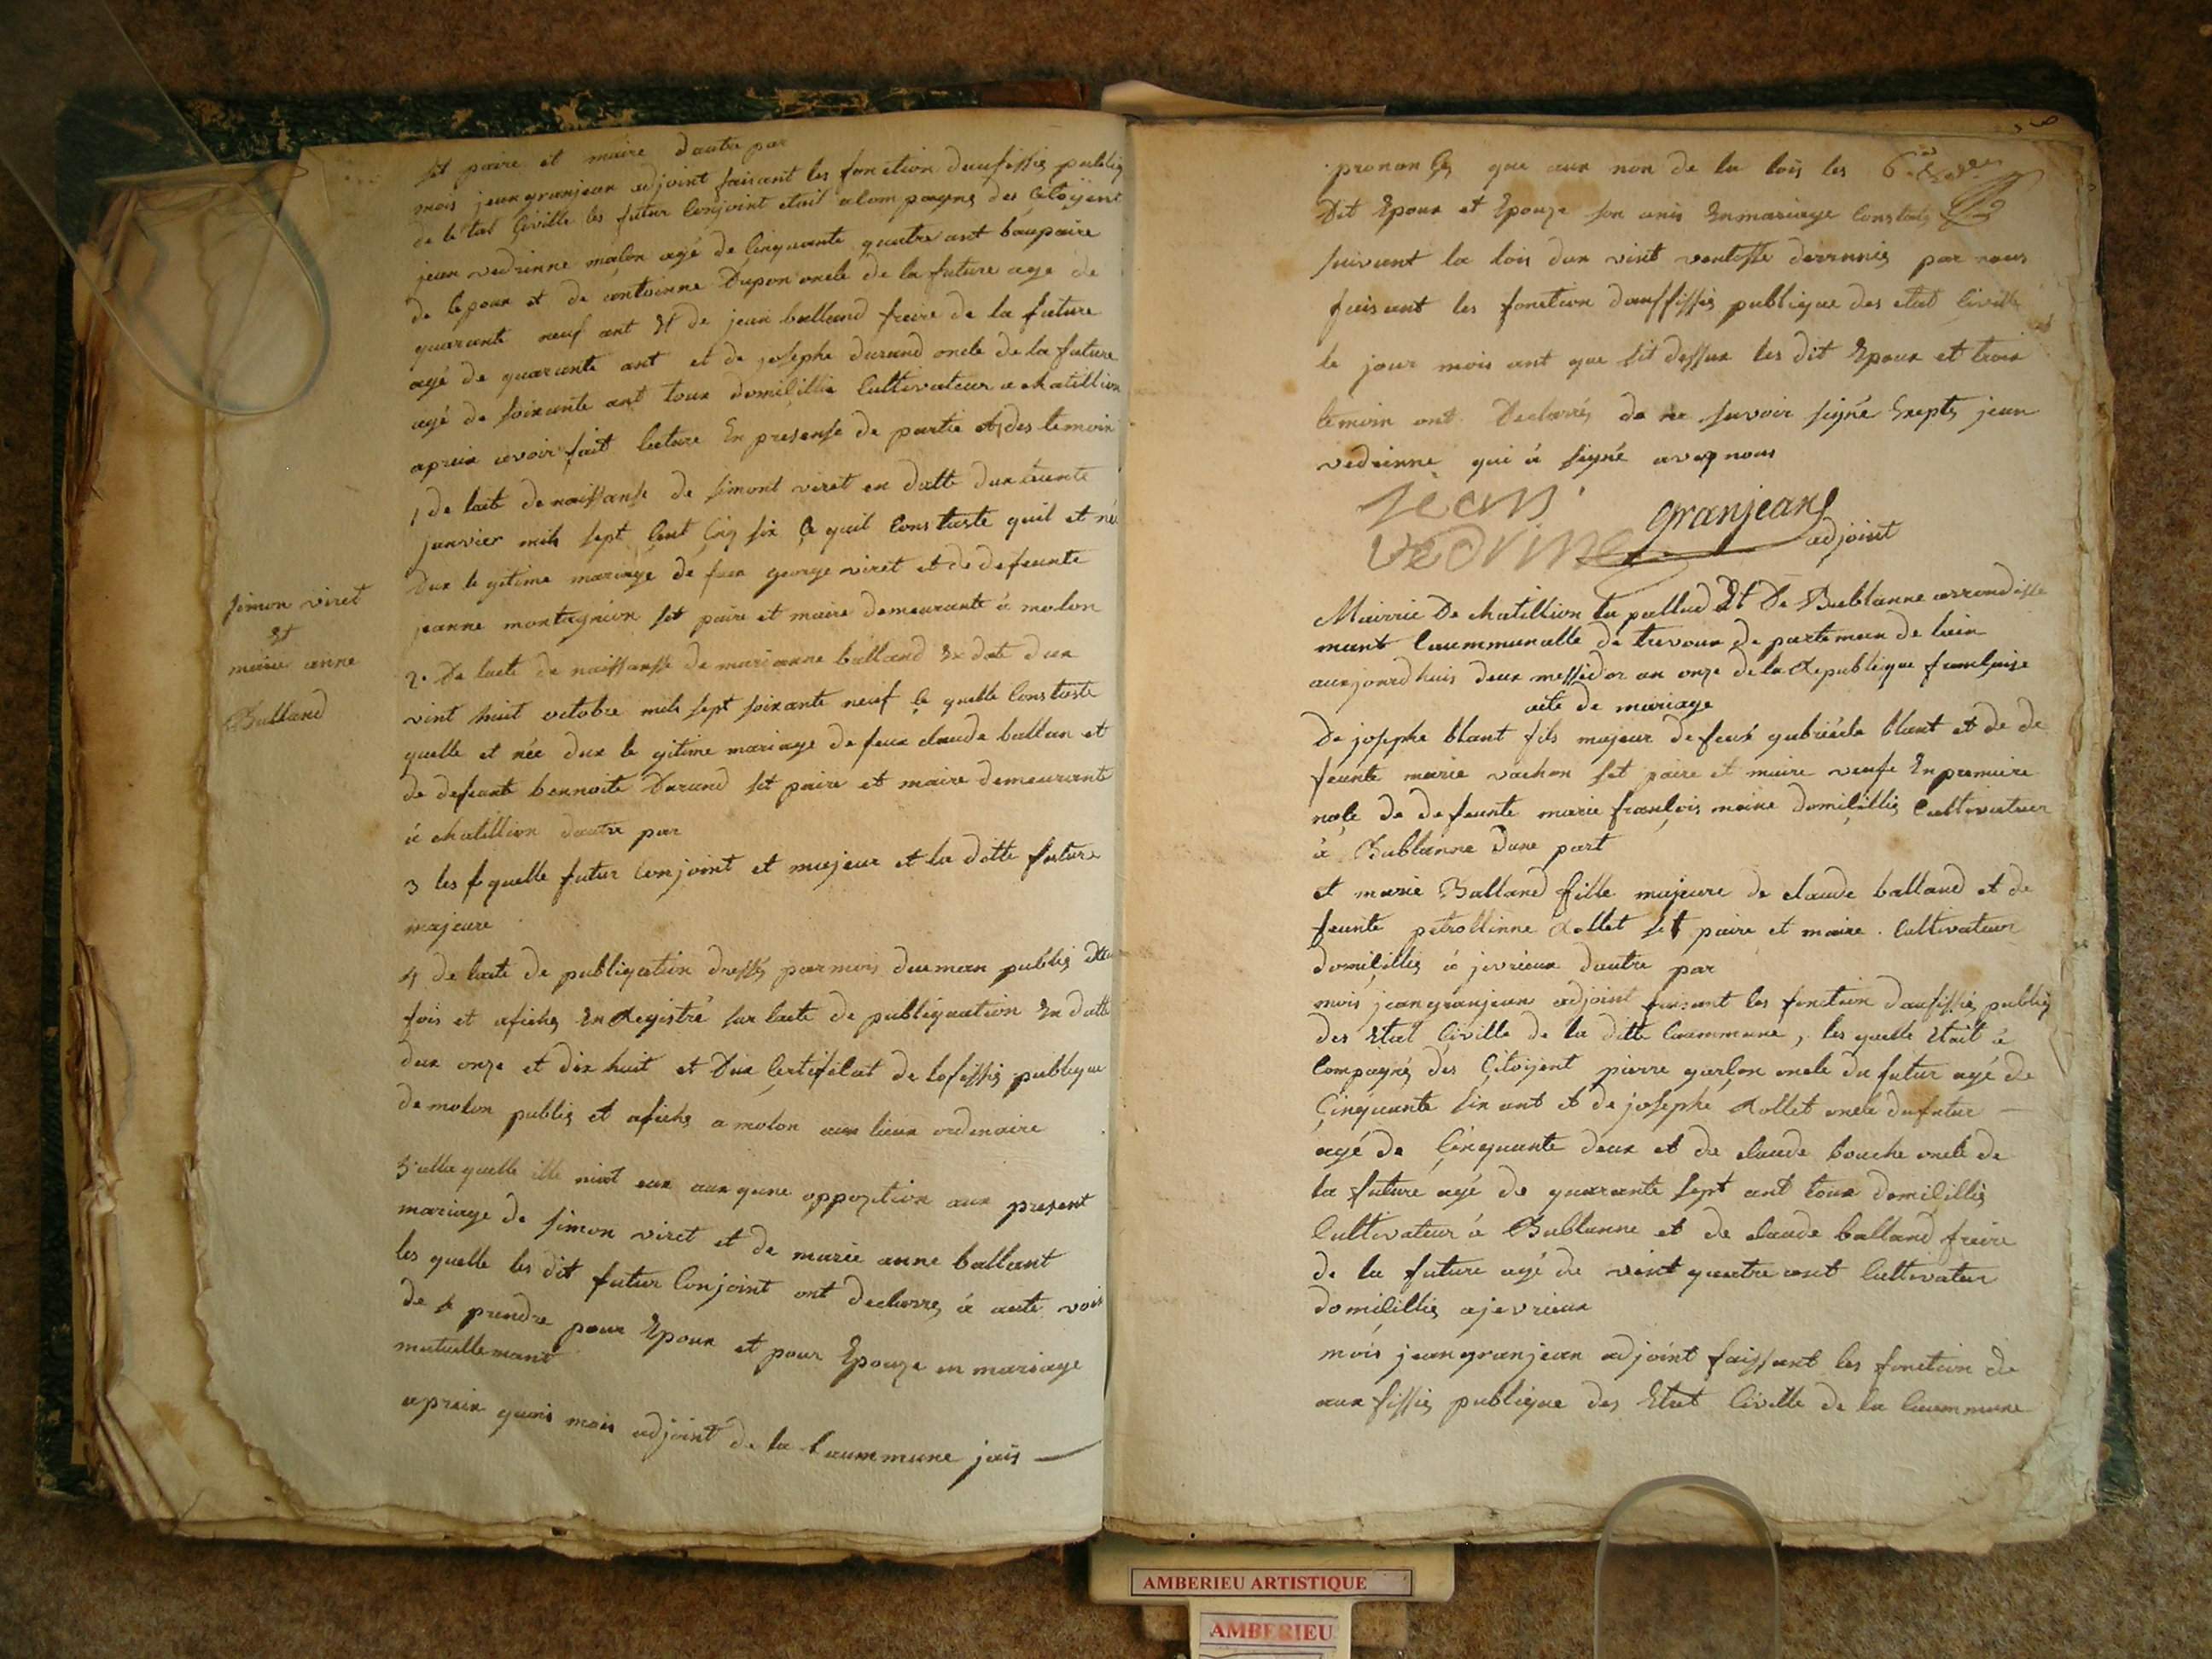 set paire et maire dautre par
mois jean granjean adjoint faisant les fonction daufissié publiq
de letat Civille les futur Conjoint etait acompagné des Citoyent
jean vedrinne malon agé de Cinquante quatre ant baupaire
de lepoux et de antoinne Dupon oncle de la future agé de
quarante neuf ant Et de jean balland freire de la future
agé de quarante ant et de josephe durand oncle de la future
agé de soixante ant toux domicillié Cultivateur a chatillion
apreix avoir fait lecture En presense de partie des temoin
1 de lacte de naissanse de simont viret en datte dux trente
janvier mil sept Cent Cinq six Ce quil Constaste quil et né
Dux legitime mariage de feux george viret et de defeunte
jeanne montagnion set paire et maire demeurante à molon
simon viret
Et
marie anne
Balland
2. De lacte de naissansse de marianne balland En date dux
vint huit octobre mil sept soixante neuf Ce quelle Constaste
quelle et née dux legitime mariage de feux claude ballan et
de defeunte bennoite Durand set paire et maire demeurante
à chatillion dautre par
3 les quelle futur Conjoint et majeur et la ditte future
majeure
4 de lacte de publication dressés par mois dueman publié deux
fois et afiché En Registré sur lacte de publiquation En datte
dux onze et dix huit et Dux Certificat de lofissié publique
de molon publié et afiché a molon aux lieux ordinaire
5 alla quelle ille niot eux aux qune oppozition aux present
mariage de simon viret et de marie anne ballant
les quelle les dit futur Conjoint ont declarré à aute voix
de se prendre pour Epoux et pour Epouze en mariage
mutuellemant
apreix quois mois adjoint de la Caummune jais
prononcés que aux non de la lois les
Dit Epoux et Epouze son unis En mariage Constaté
suivant la lois dux vint ventosse dernnié par nous
faisant les fonction dauffissié publique des etat Civille
le jour mois ant que sit dessux les dit Epoux et troix
temoin ont Declarrés de ne savoir signé Exepté jean
vedrinne qui à signé aveq nous
jean
vedrine granjeans
adjoint
Mairrie De chatillion la pallud Et De Bublanne arrondisse
mant Caummunalle de trevoux departeman de lain
aujourdhuis deux messidor an onze de la Republique francaise
acte de mariage
De josephe blant fils majeur de feux gabriéele blant et de de
feunte marie vachon set paire et maire veufe En premiere
noce de defeunte marie francois moine domicillié Cultivateur
à Bublanne dune part
et marie Balland fille majeure de claude balland et de
feunte petrollinne Rollet set paire et maire Cultivateur
domicillié à jevrieux dautre par
mois jean granjean adjoint faisant les fonction daufissié publiq
des Etat Civille de la ditte Caummune, les quelle Etait à
Compagné des Citoyent pierre garlon oncle du futur agé de
Cinquante six ant et de josephe Rollet oncle du futur
agé de Cinquante deux et de claude bouche oncle de
la future agé de quarante sept ant toux domicillié
Cultivateur à Bublanne et de claude balland freire
de la future agé de vint quatre ant Cultivateur
domicillié ajevrieux
mois jean granjean adjoint faissant les fonction de
aux fissié publique des Etat Civille de la Caummune
AMBERIEU ARTISTIQUE
AMBERIEU